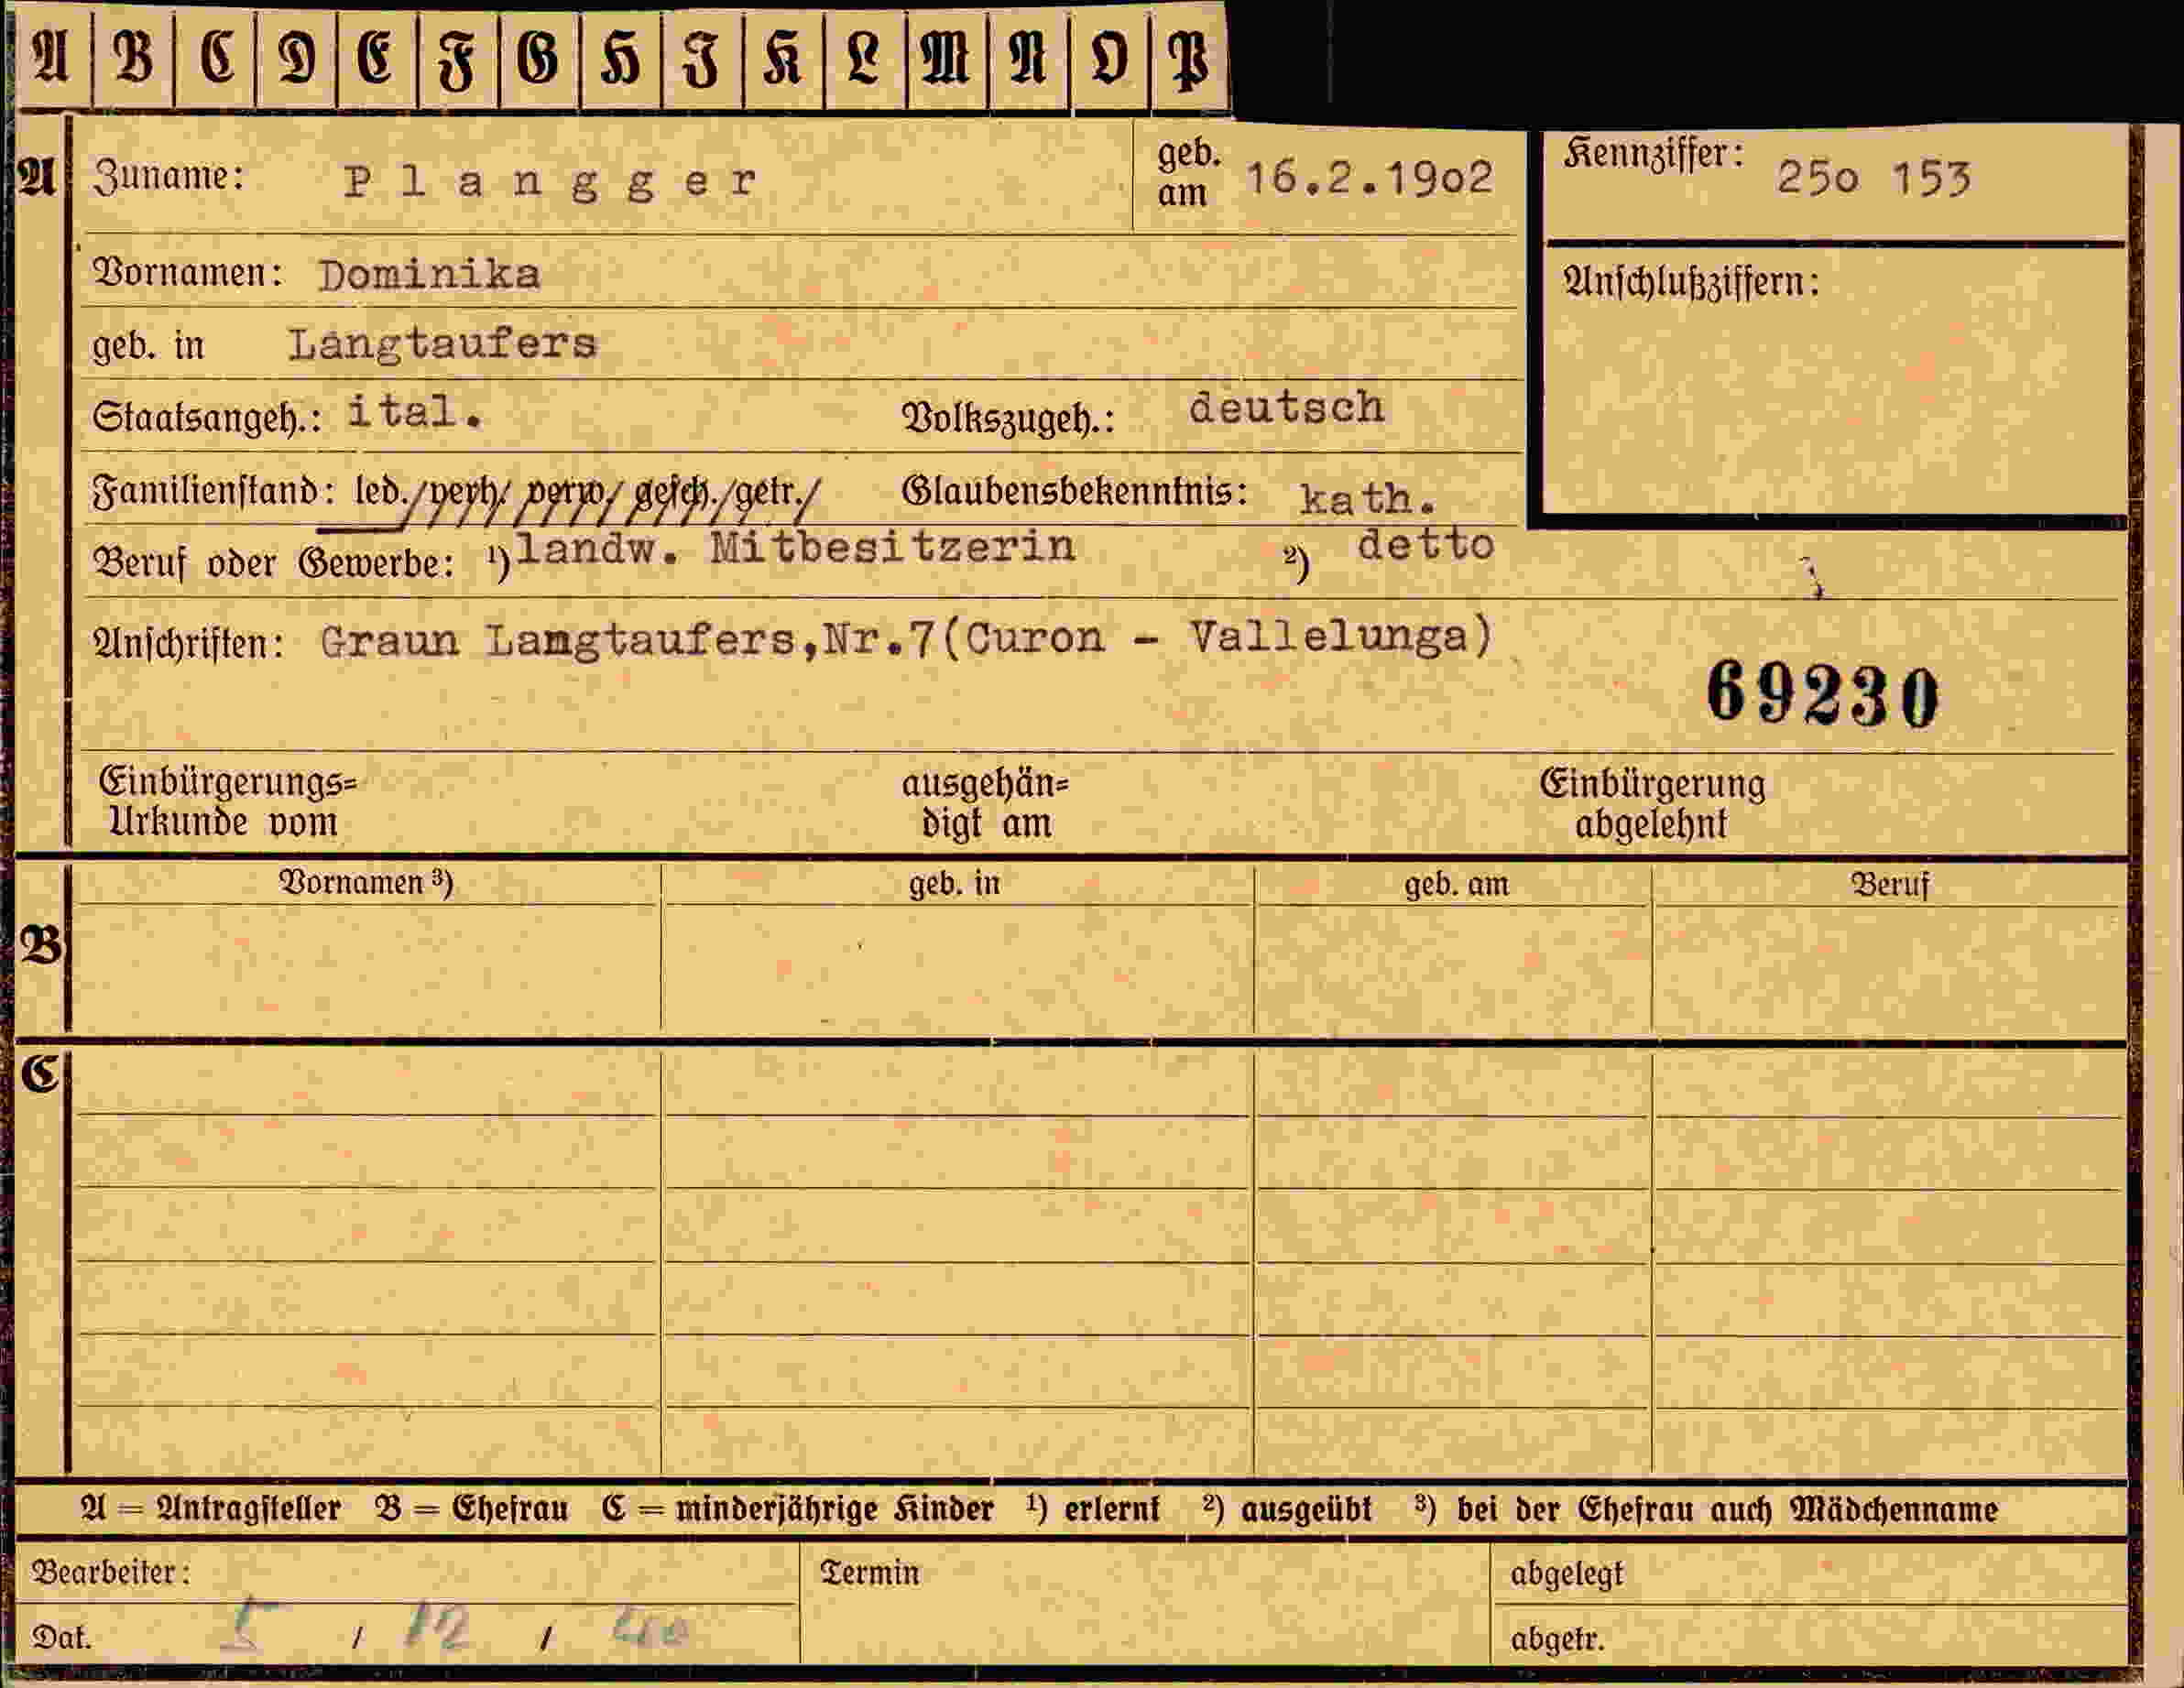 A B C D E F G H I K L M N O P
A Zuname: Plangger geb. am 16.2.1902 Kennziffer: 250 153
Vornamen: Dominika Anschlußziffern:
geb. in Langtaufers
Staatsangeh.: ital. Volkszugeh.: deutsch
Familienstand: led./verh/ verw/ gesch./getr./ Glaubensbekenntnis: kath.
Beruf oder Gewerbe: ¹) landw. Mitbesitzerin ²) detto
Anschriften: Graun Langtaufers,Nr.7(Curon - Vallelunga)
69230
Einbürgerungs= ausgehän= Einbürgerung
Urkunde vom digt am abgelehnt
Vornamen ³) geb. in geb. am Beruf
B
C
A = Antragsteller B = Ehefrau C = minderjährige Kinder ¹) erlernt ²) ausgeübt ³) bei der Ehefrau auch Mädchenname
Bearbeiter: Termin abgelegt
Dat. 5 / 12 / 40 abgetr.